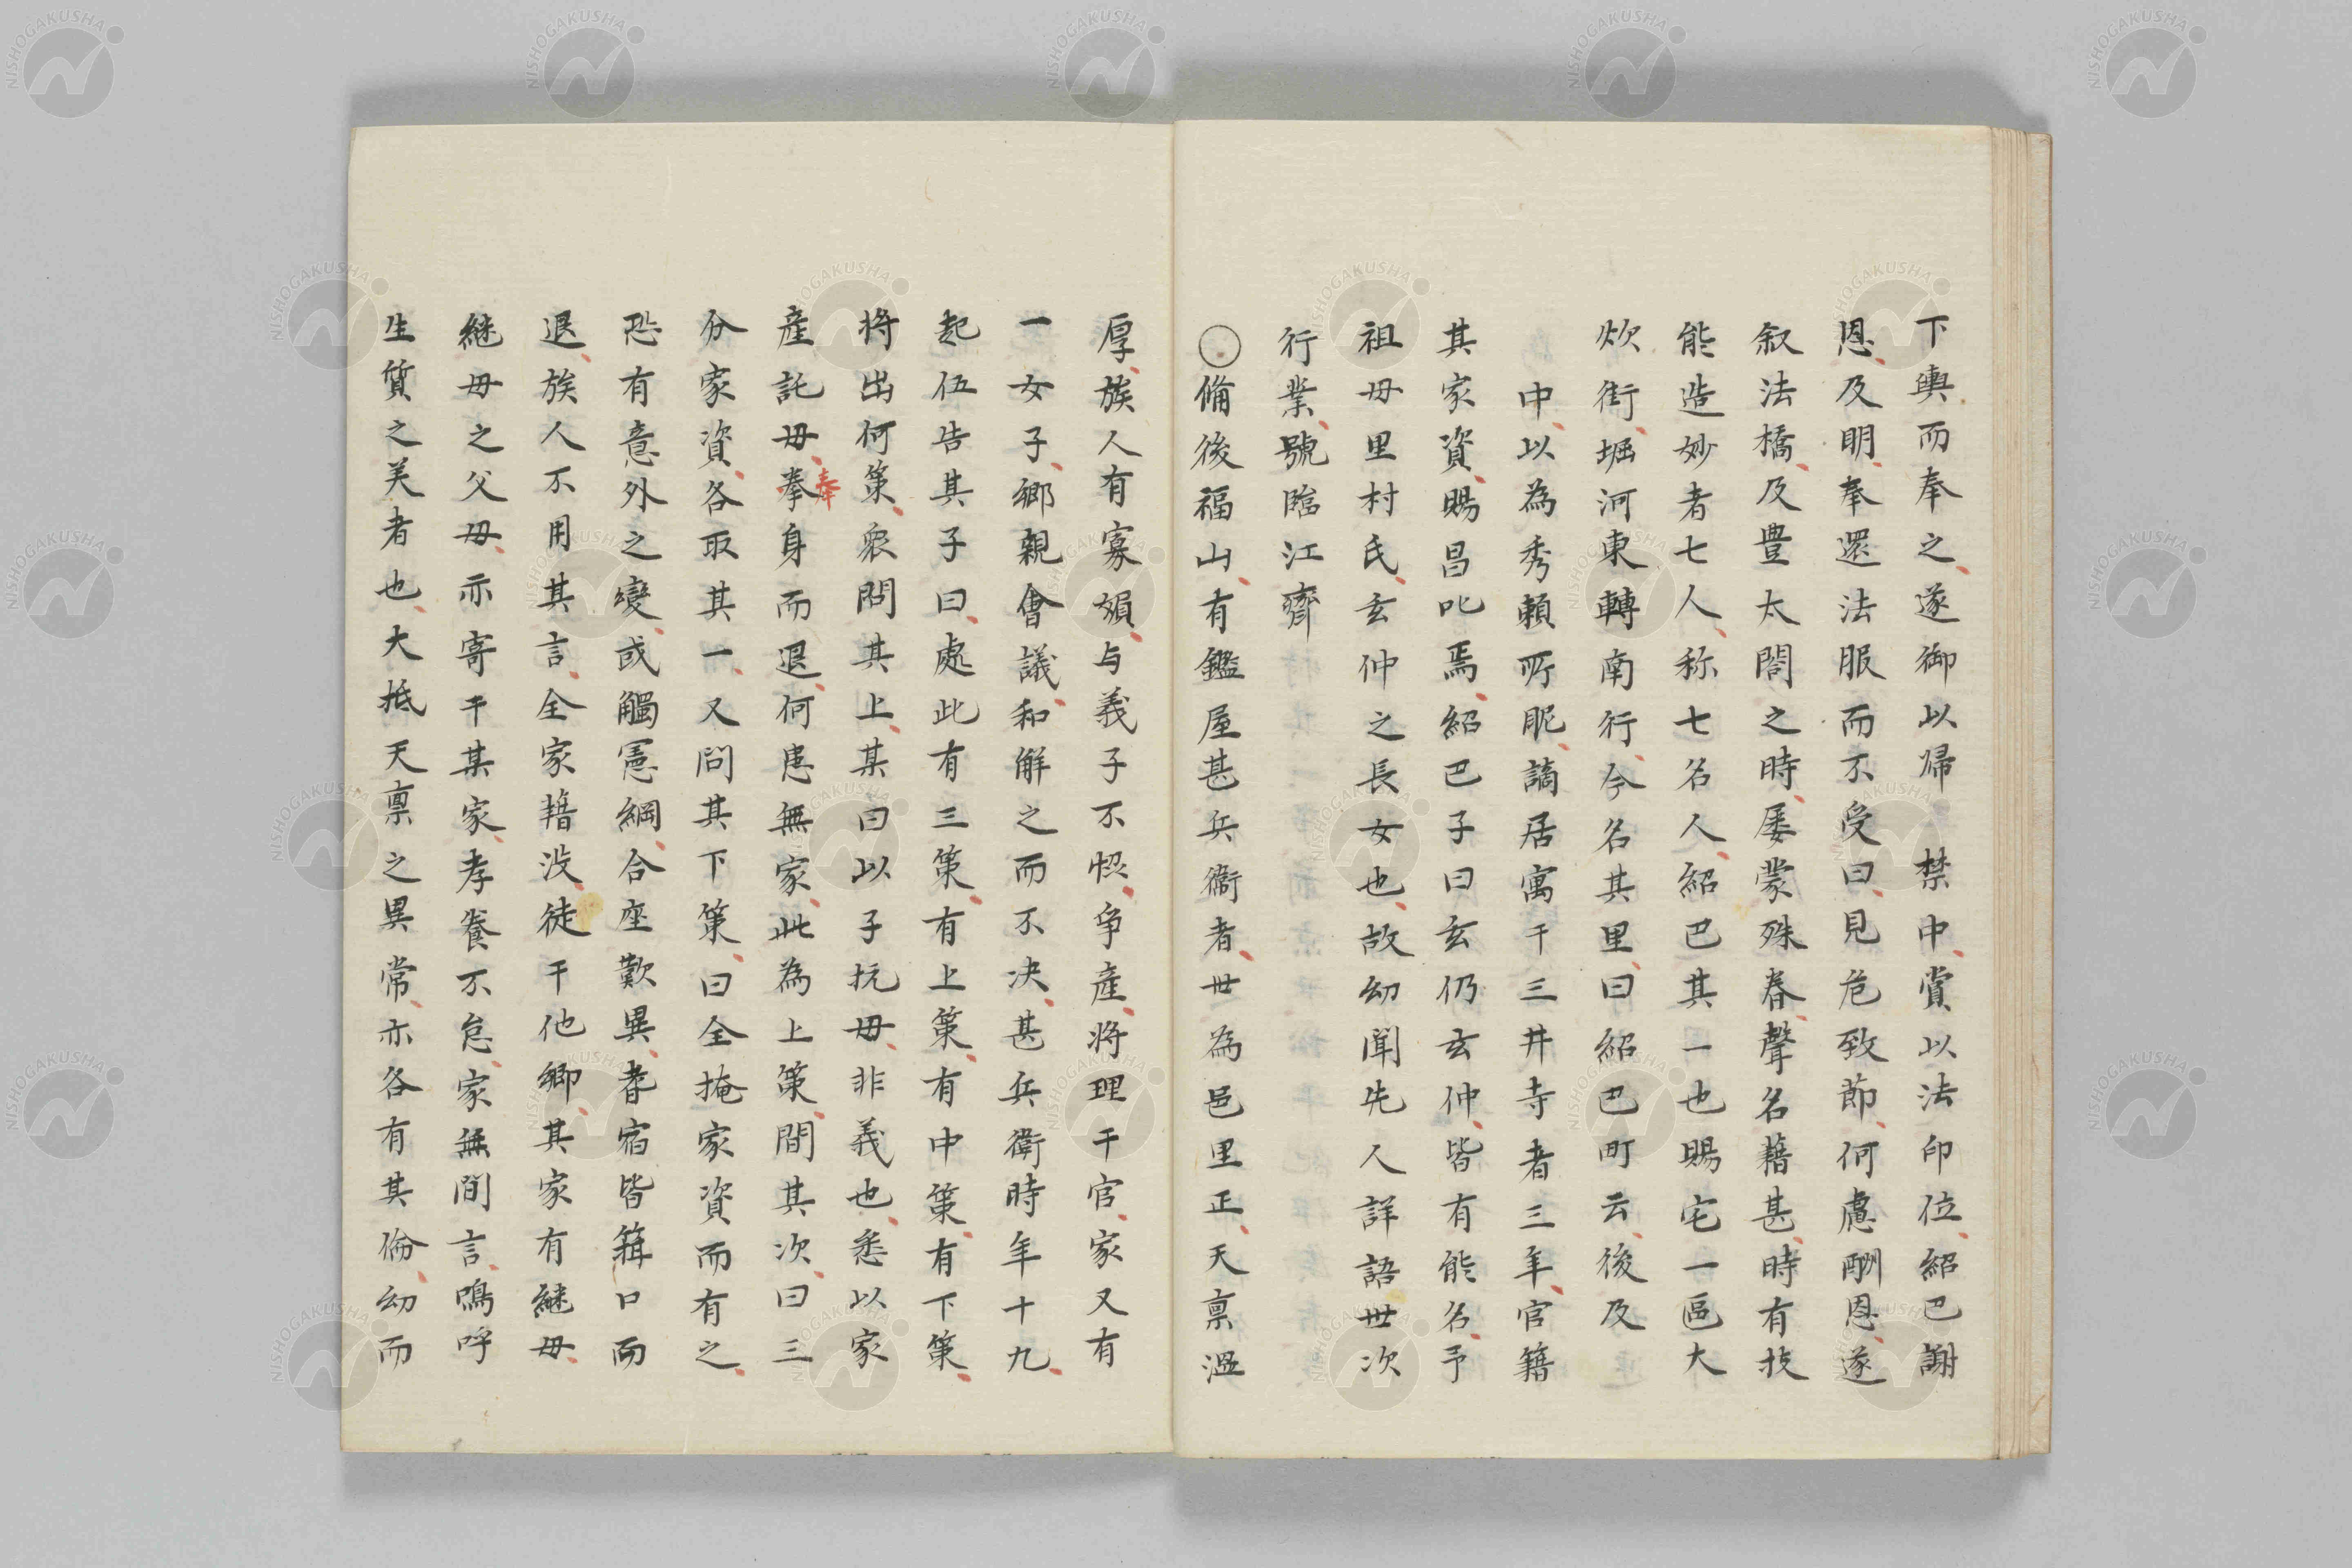 下輿而奉之、遂御以歸　禁中、賞以法印位、紹巴謝
恩、及明、奉還法服而不受曰、見危致節、何慮酬恩、遂
叙法橋、及豊太閤之時、屡蒙殊眷、聲名藉甚、時有技
能造妙者七人、称七名人、紹巴其一也賜宅一區大
炊街、堀河東轉南行、今名其里、曰紹巴町云、後及
中、以為秀賴所昵、謫居寓于三井寺者三年、官籍
其家資、賜昌叱焉、紹巴子曰玄仍玄仲、皆有能名、予
祖母里村氏、玄仲之長女也、故幼聞先人詳語世次
行業、號臨江齊
○備後福山、有鑑屋甚兵衞者、世為邑里正、天禀溫
厚、族人有寡嬬、与義子不恊、爭產、将理于官、家又有
一女子、鄉親會議、和解之而不决、甚兵衛時年十九、
起伍告其子曰、處此有三策、有上策、有中策、有下策、
将出何策、衆問其上、其曰以子抗母、非義也、悉以家
產託母、拳身而退、何患無家、此為上策、間其次、曰三
奉
分家資、各取其一、又問其下策、曰全掩家資而有之、
恐有意外之變、或觸憲綱、合座歎異、耆宿皆箝口而
退、族人不用其言、全家藉没、徒于他鄉、其家有継母、
継母之父母、亦寄于其家、孝養不怠、家無間言、鳴呼
生質之美者也、大抵天禀之異常、亦各有其倫、幼而